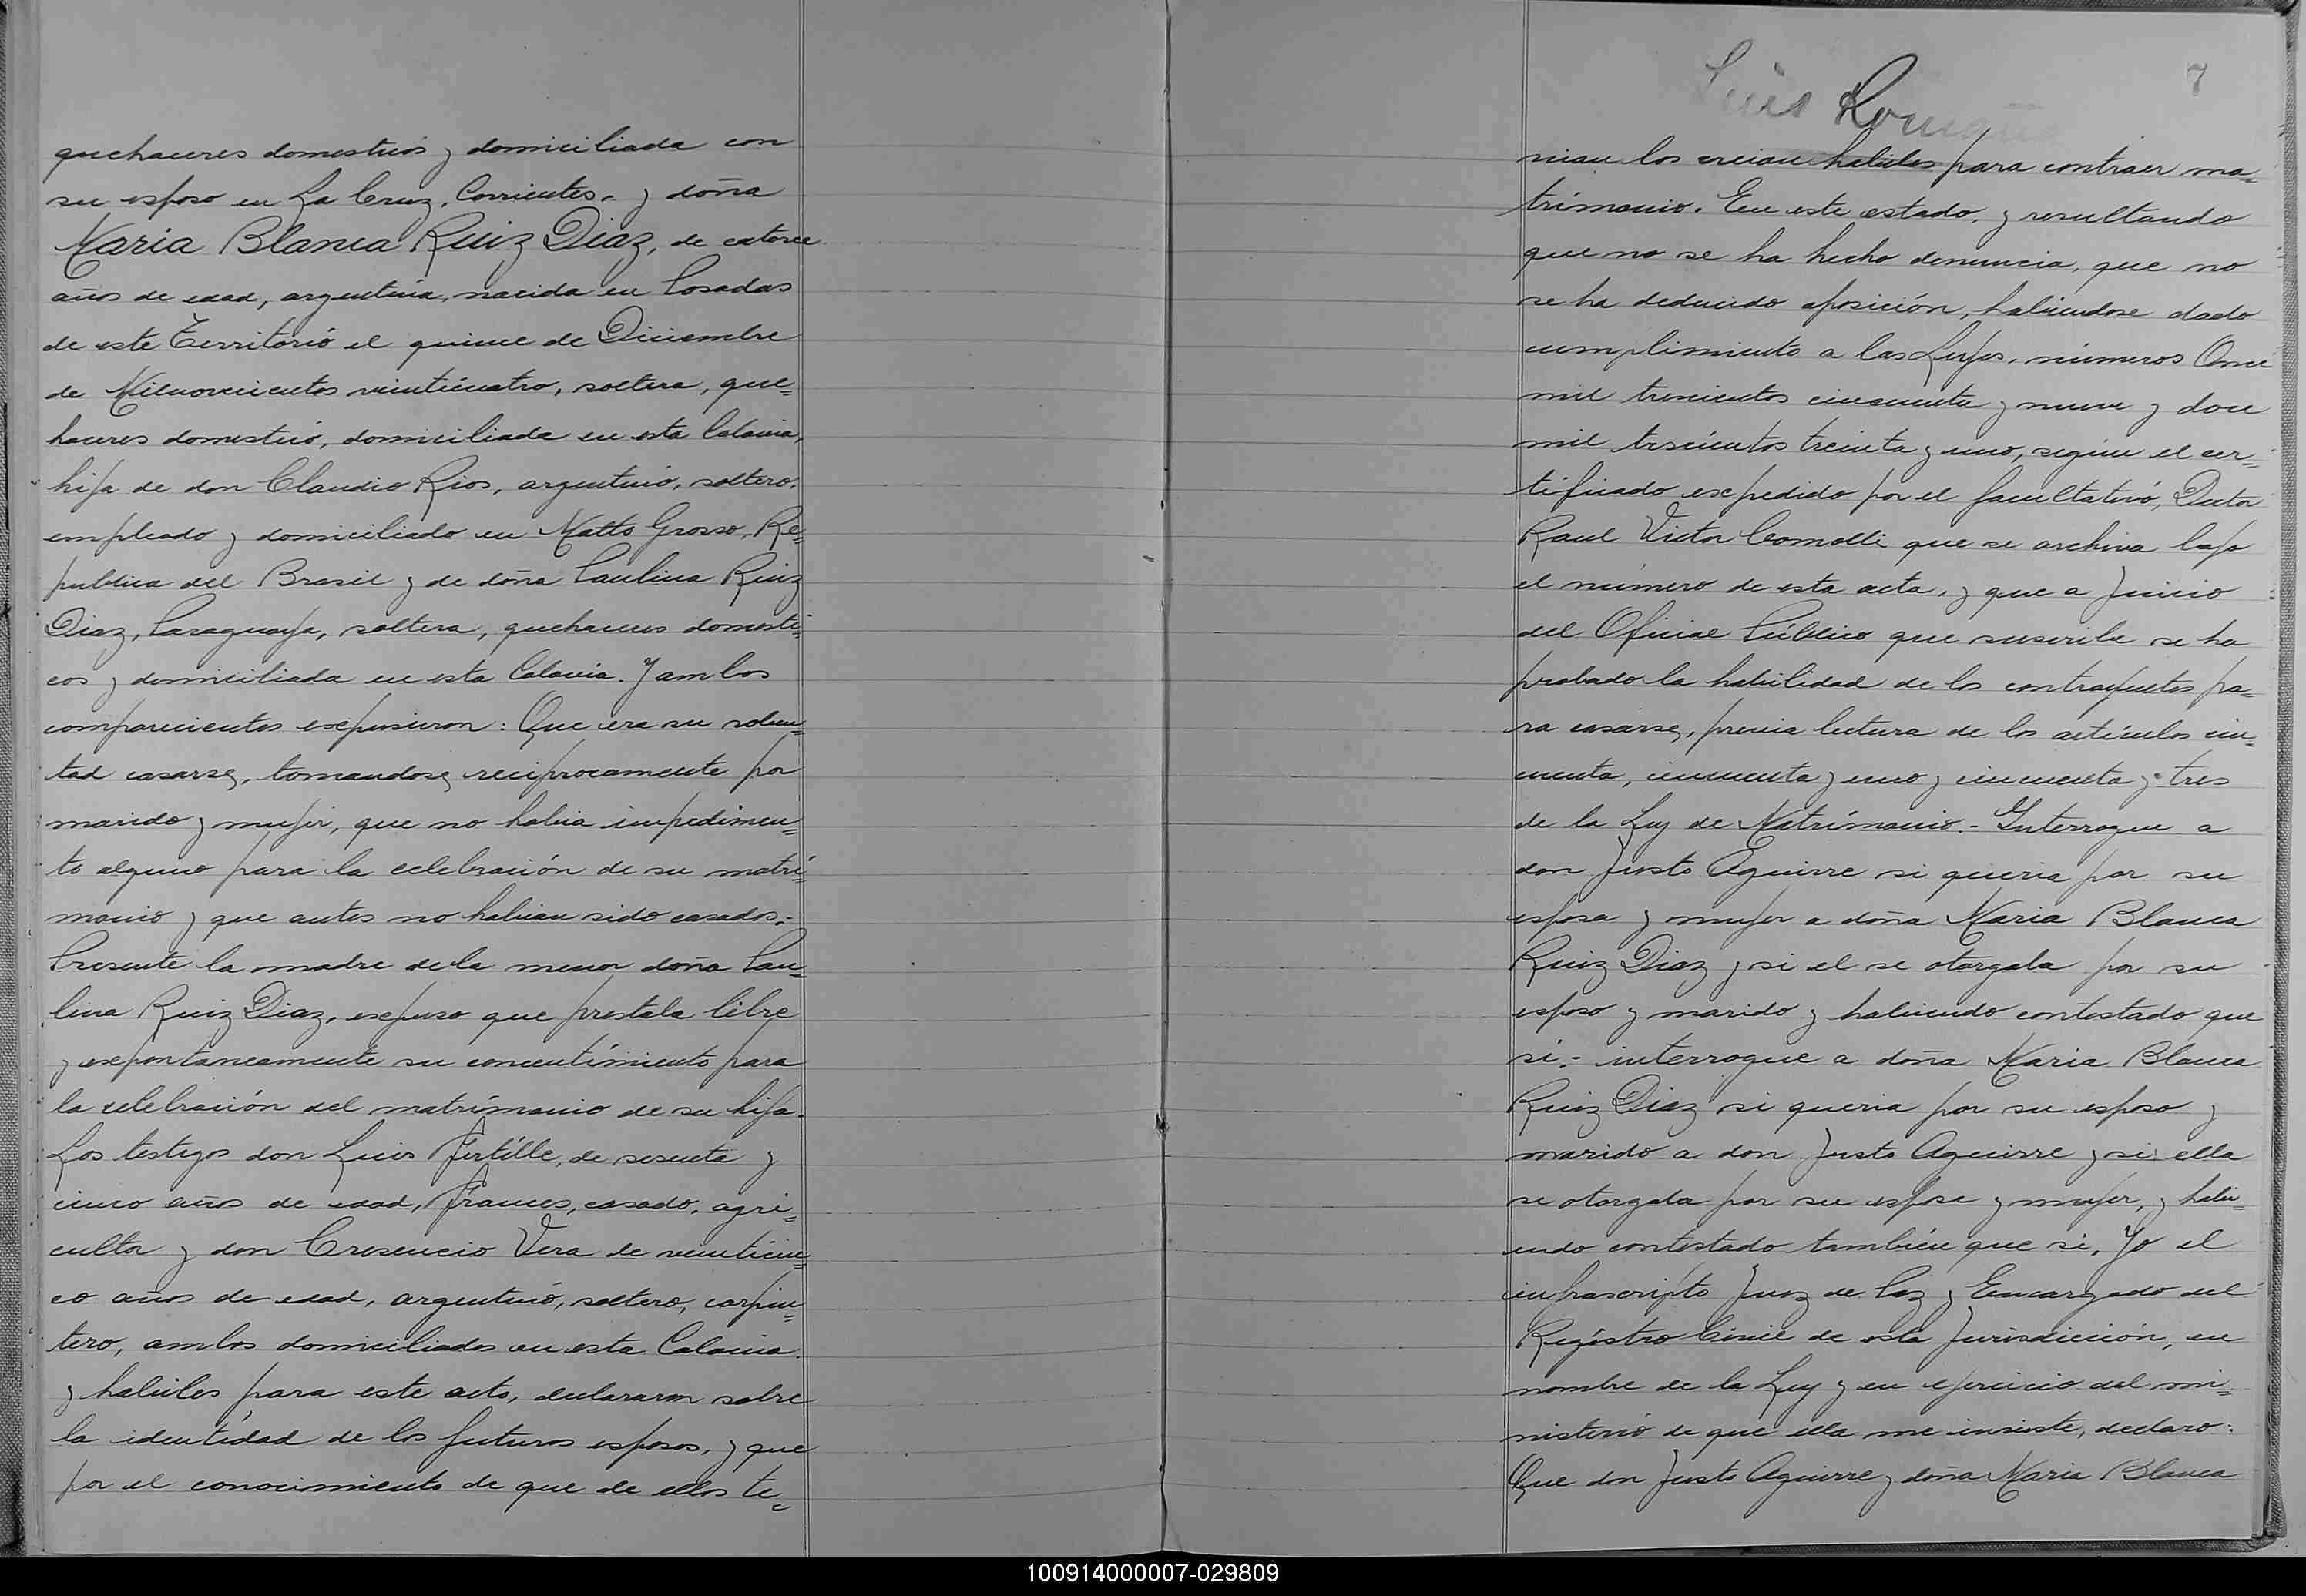 quehaceres domesticós y domiciliada con
su esposo en La Cruz, Corrientes.- y doña
Maria Blanca Ruiz Diaz, de catorce
años de edad, argentina, nacida en Posadas
de este Territorió el quince de Diciembre
de Milnovecientos veinticuatro, soltera, que=
haceres domesticó, domiciliada en esta Colonia,
hija de don Claudio Rios, argentinó, soltero,
empleado y domiciliado en Matto Grosso, Re=
publica del Brasil y de doña Paulina Ruiz
Diaz, Paraguaya, soltera, quehaceres domesti=
cos y domiciliada en esta Colonia. Y ambos
comparecientes expusieron: Que era su volun=
tad casarse, tomandose reciprocamente por
marido y mujer, que no habia impedimen=
to alguno para la celebración de su matri=
monio y que antes no habian sido casados.-
Presente la madre de la menor doña Pau=
lina Ruiz Diaz, expuso que prestaba libre
y expontaneamente su concentimiento para
la celebración del matrimonio de su hija.
Los testigos don Luis Fertille, de sesenta y
cinco años de edad, Frances, casado, agri=
cultor y don Cresencio Vera de veinticin=
co años de edad, argentinó, soltero, carpin=
tero, ambos domiciliados en esta Colonia
y habiles para este acto, declararon sobre
la identidad de los futuros esposos, y que
por el conocimiento de que de ellos te=
7
Luis
nian los creian habiles para contraer ma=
trimonio. En este estado, y resultando
que no se ha hecho denuncia, que no
se ha deducido oposición, habiendose dado
cumplimiento a las Leyes, números Once
mil trescientos cincuenta y nueve y doce
mil trescientos treinta y uno, según el cer=
tificado expedido por el facultativó, Doctor
Raul Victor Comolli que se archiva bajo
el número de esta acta, y que a Juicio
del Oficial Público que suscribe se ha
probado la habilidad de los contrayentes pa=
ra casarse, previa lectura de los artículos cin=
cuenta, cincuenta y uno y cincuenta y tres
de la Ley de Matrimonio.- Interrogue a
don Justo Aguirre si queria por su
esposa y mujer a doña Maria Blanca
Ruiz Diaz y si el se otorgaba por su
esposo y marido y habiendo contestado que
si.- interrogue a doña Maria Blanca
Ruiz Diaz si queria por su esposo y
marido a don Justo Aguirre y si ella
se otorgaba por su espose y mujer, y habi=
endo contestado también que si, Yo el
infrascripto Juez de Paz y Encargado del
Registro Civil de esta Jurisdicción, en
nombre de la Ley y en ejercicio del mi=
nisterió de que ella me inviste, declaro:
Que don Justo Aguirre y doña Maria Blanca
100914000007-029809